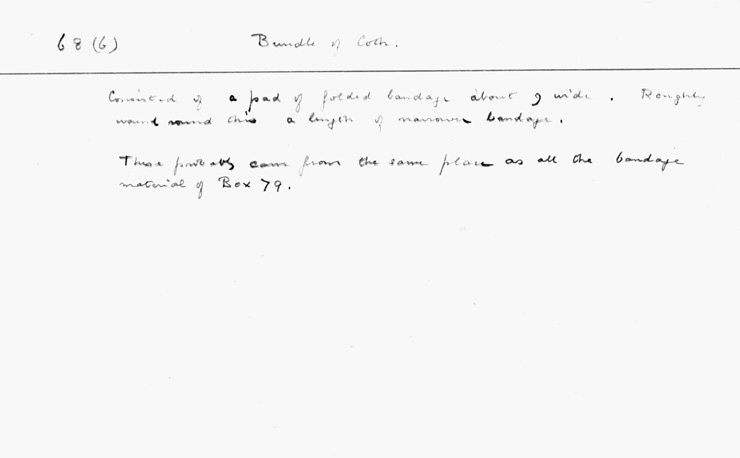 68 (6) Bundle of Cloth.
Consisted of a pad of folded bandage about 9 wide. Roughly
wound round this a length of narrower bandage.
These probably came from the same place as all the bandage
material of Box 79.